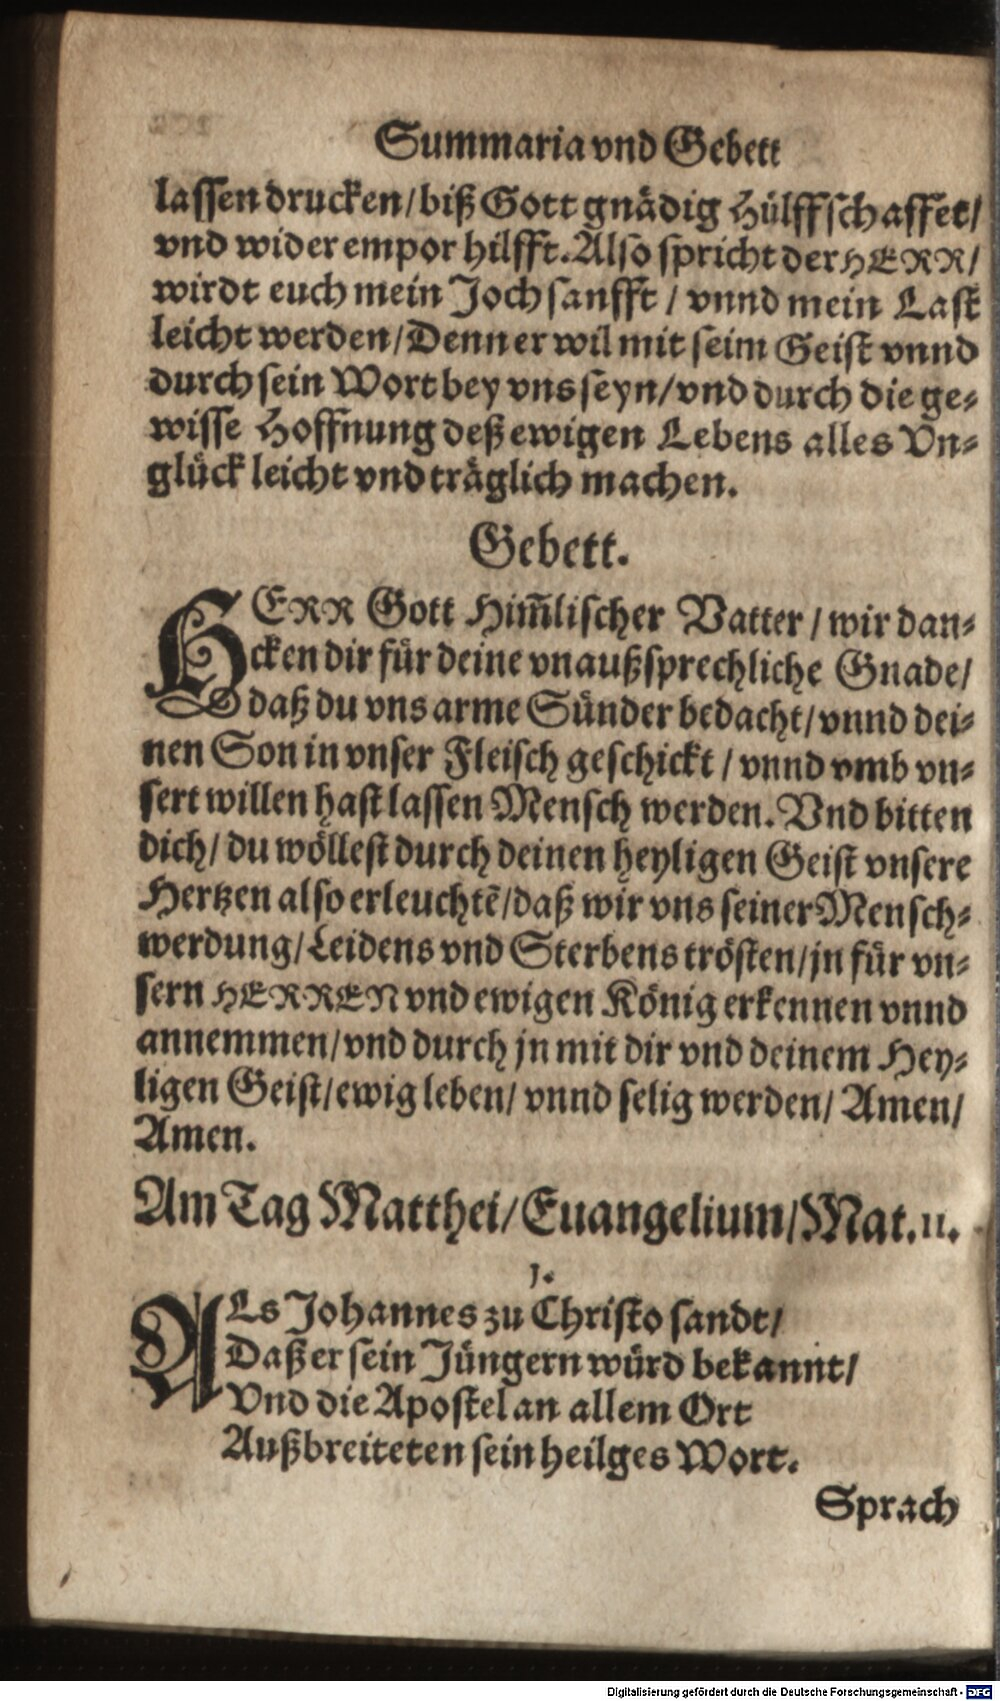 Summaria vnd Gebett
lassen drucken/ biß Gott gnädig Hülff schaffet/
vnd wider empor hilfft. Also spricht der HERR/
wirdt euch mein Joch sanfft / vnnd mein Last
leicht werden/ Denn er wil mit seim Geist vnnd
durch sein Wort bey vns seyn/ vnd durch die ge-
wisse Hoffnung deß ewigen Lebens alles Vn-
glück leicht vnd träglich machen.
Gebett.
HERR Gott Him̃lischer Vatter / wir dan-
cken dir für deine vnaußsprechliche Gnade/
daß du vns arme Sünder bedacht/ vnnd dei-
nen Son in vnser Fleisch geschickt / vnnd vmb vn-
sert willen hast lassen Mensch werden. Vnd bitten
dich/ du wöllest durch deinen heyligen Geist vnsere
Hertzen also erleuchtẽ/ daß wir vns seiner Mensch-
werdung/ Leidens vnd Sterbens trösten/ jn für vn-
sern HERREN vnd ewigen König erkennen vnnd
annemmen/ vnd durch jn mit dir vnd deinem Hey-
ligen Geist/ ewig leben/ vnnd selig werden/ Amen/
Amen.
Am Tag Matthei/ Euangelium/ Mat. 11.
1.
ALs Johannes zu Christo sandt/
Daß er sein Jüngern würd bekannt/
Vnd die Apostel an allem Ort
Außbreiteten sein heilges Wort.
Sprach
Digitalisierung gefördert durch die Deutsche Forschungsgemeinschaft - DFG